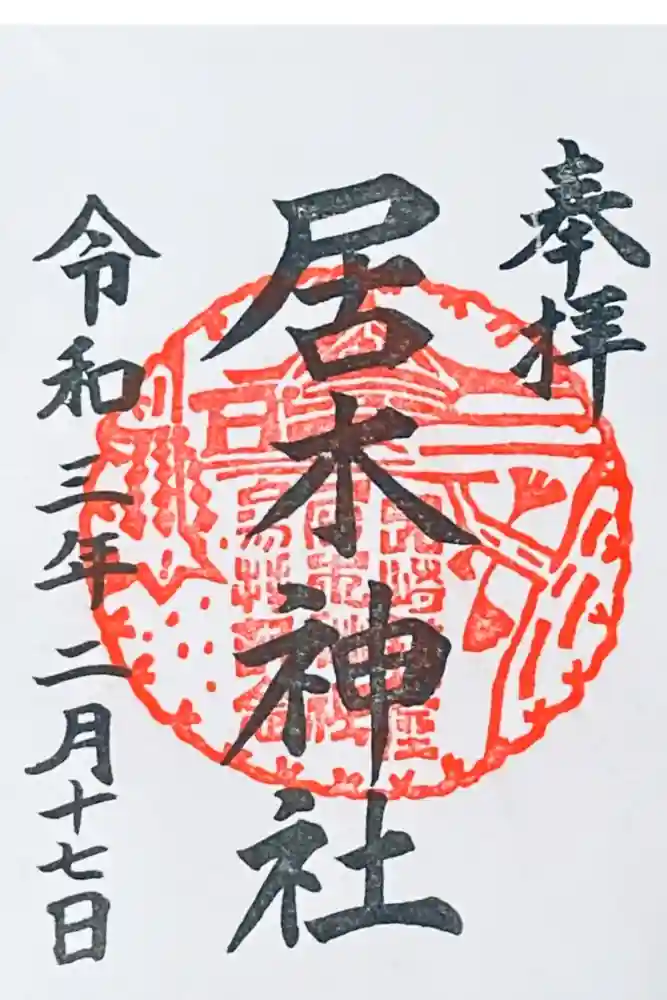 奉拝
居木神社
令和三年二月十七日